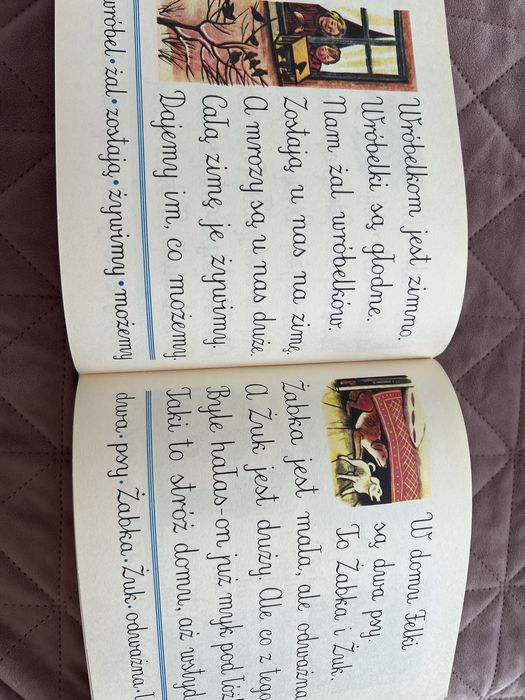 Wróbelkom jest zimno.
Wróbelki są głodne.
Nam żal wróbelków.
Zostają u nas na zimę.
A mrozy są u nas duże.
Całą zimę je żywimy.
Dajemy im, co możemy.
wróbel • żal • zostają • żywimy • możemy
W domu Felki
są dwa psy.
To Żabka i Żuk.
Żabka jest mała, ale odważna
A Żuk jest duży. Ale co z tego
Byle hałas-on już myk pod
Taki to stróż domu, aż
dwa • psy • Żabka • Żuk • odważna •